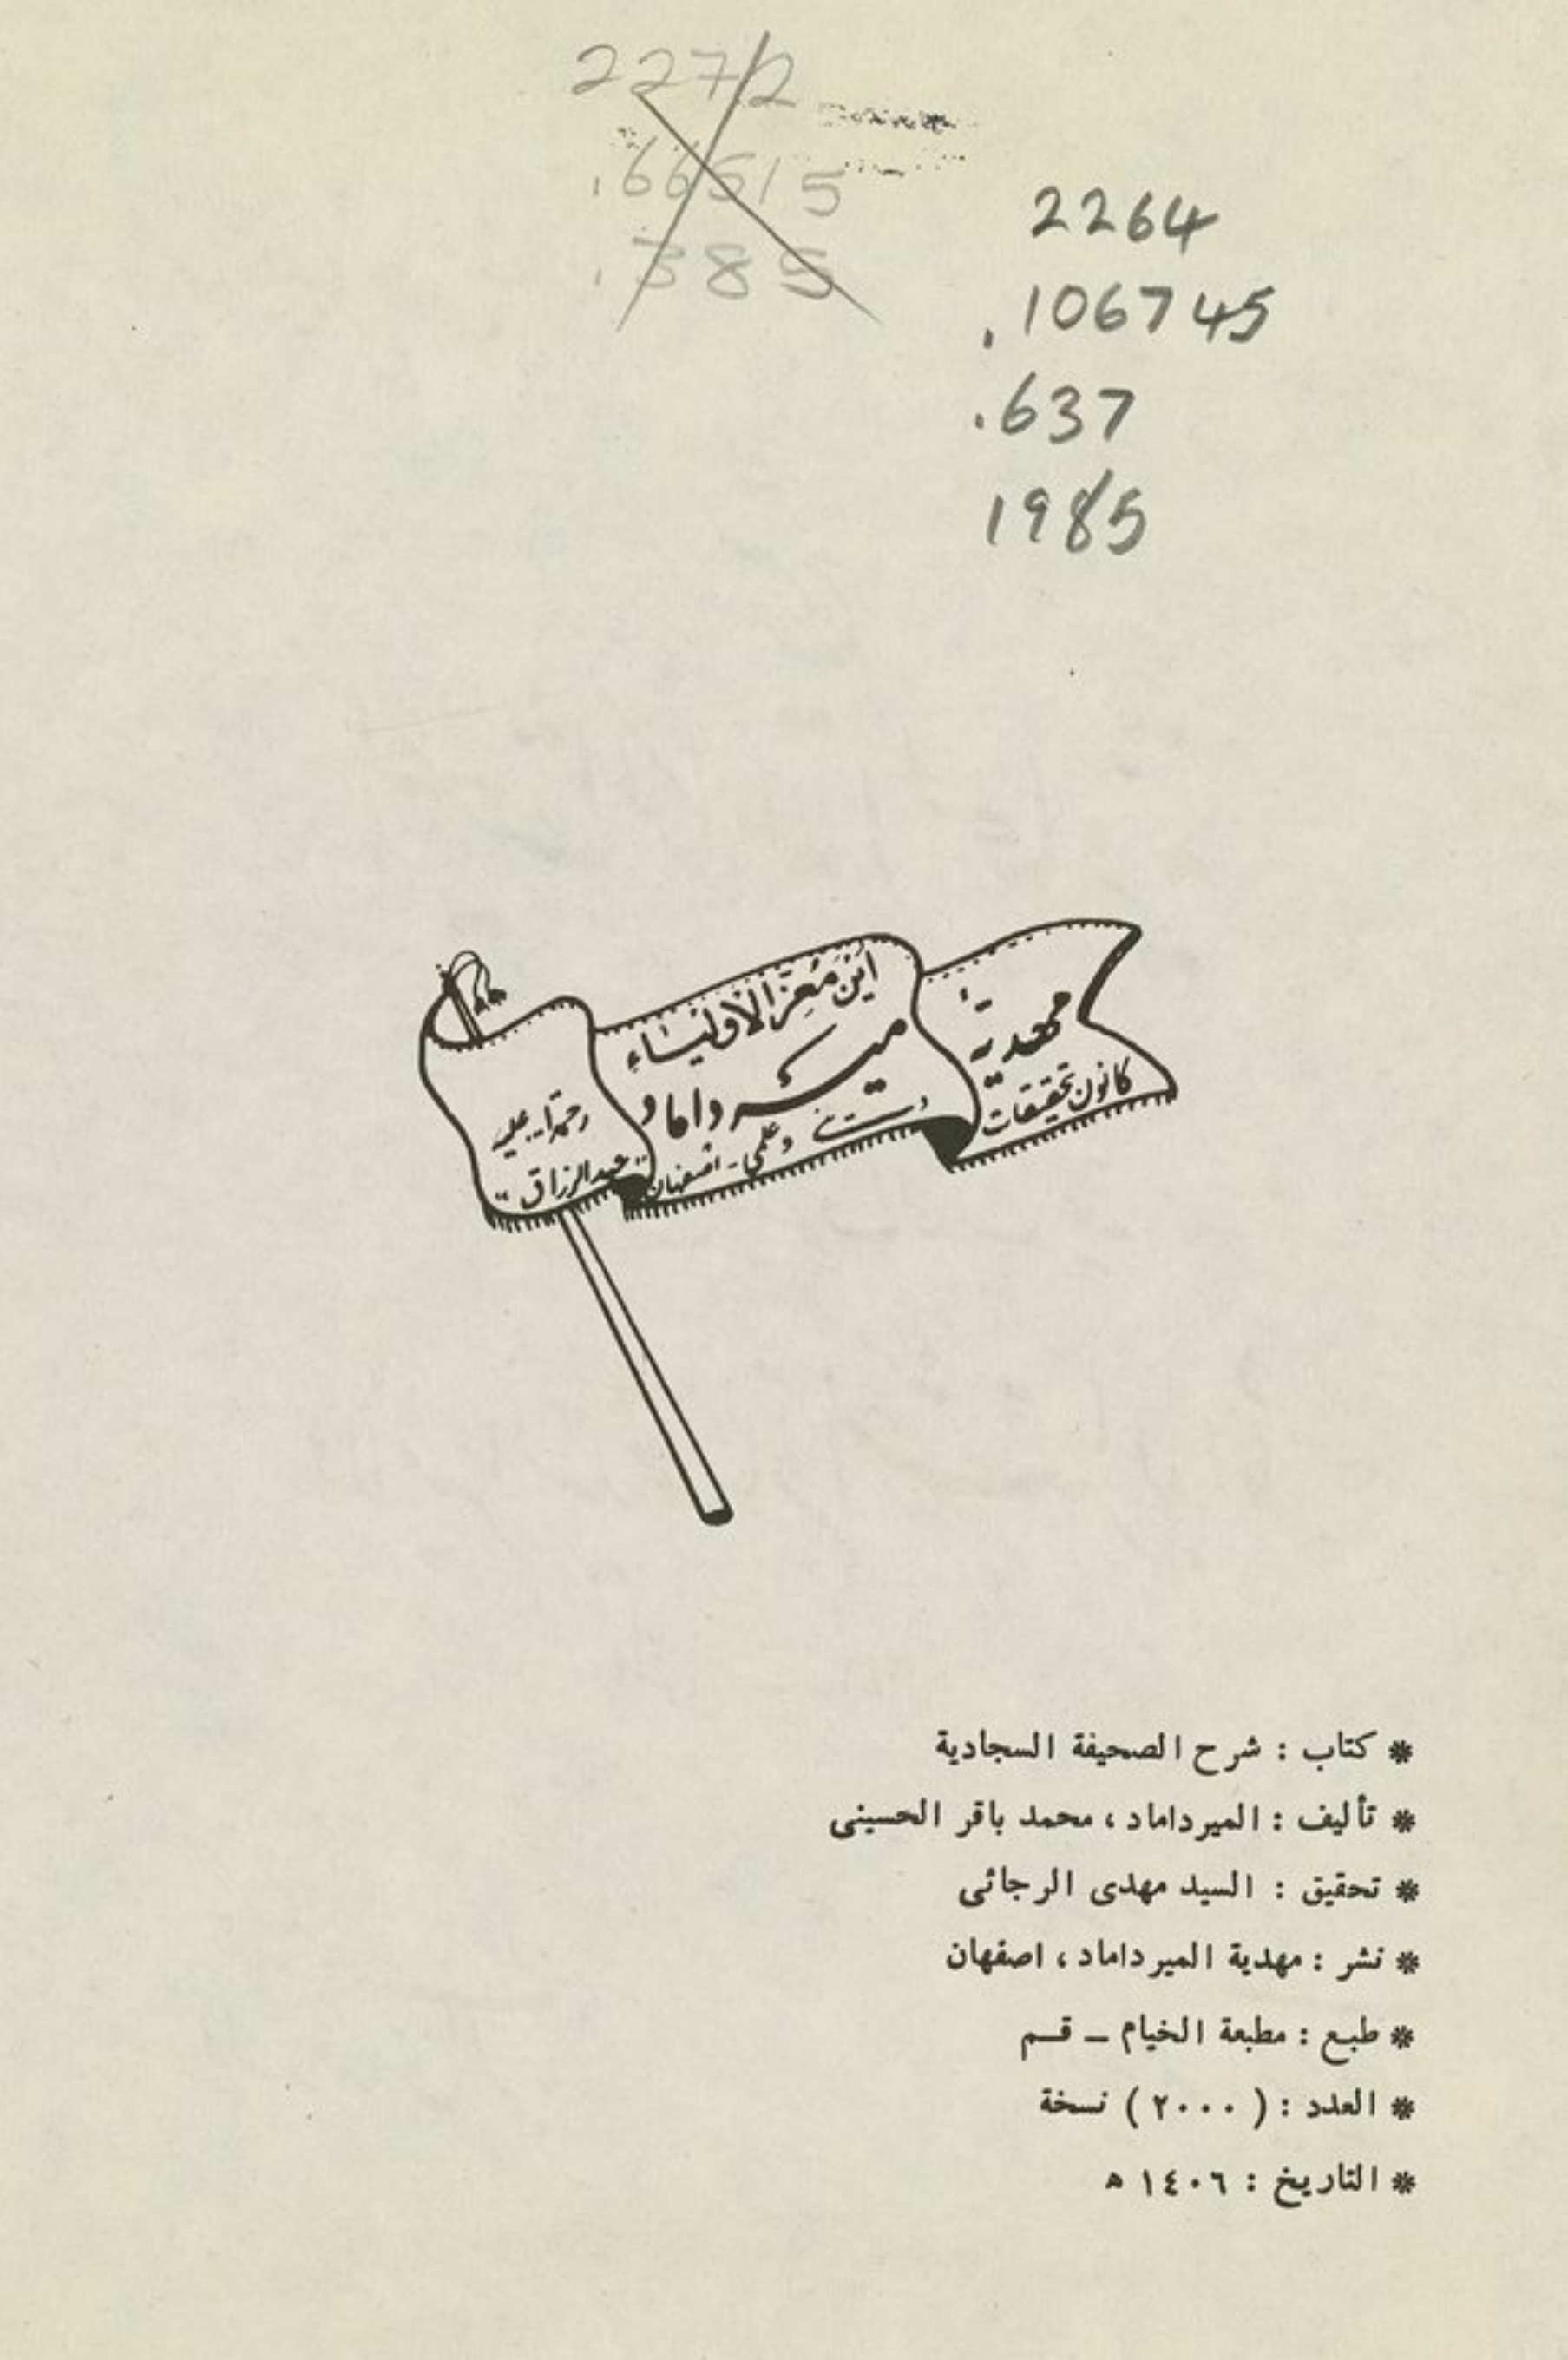 2272
.66515
.385
2264
.106745
.637
1985
این معز الاولیاء
مهدیة
میر داماد
کانون تحقیقات
و علمی - اصفهان
عبدالرزاق
* كتاب : شرح الصحيفة السجادية
* تأليف : الميرداماد ، محمد باقر الحسينى
* تحقيق : السيد مهدى الرجائى
* نشر : مهدية الميرداماد ، اصفهان
* طبع : مطبعة الخيام ــ قم
* العدد : ( ٢٠٠٠ ) نسخة
* التاريخ : ١٤٠٦ ه